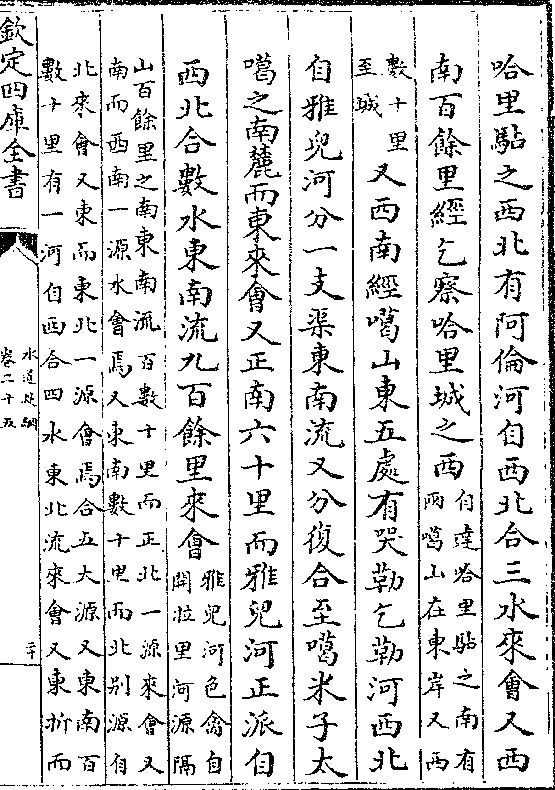 哈里㸃之西北有阿倫河自西北合三水來會又西
南百餘里經乞察哈里城之西自達哈里㸃之南有
兩噶山在東岸又西
數十里
至城又西南經噶山東五處有哭勒乞勒河西北
自雅兒河分一支渠東南流又分復合至噶米子太
噶之南麓而東來會又正南六十里而雅兒河正派自
西北合數水東南流九百餘里來會雅兒河色禽自
開拉里河源隔
山百餘里之南東南流百數十里而正北一源來會又
南而西南一源水會焉又東南數十里而北别源自
北來會又東而東北一源會焉合五大源又東南百
數十里有一河自西合四水東北流來會又東折而
欽定四庫全書
水道提綱
卷二十五
二十